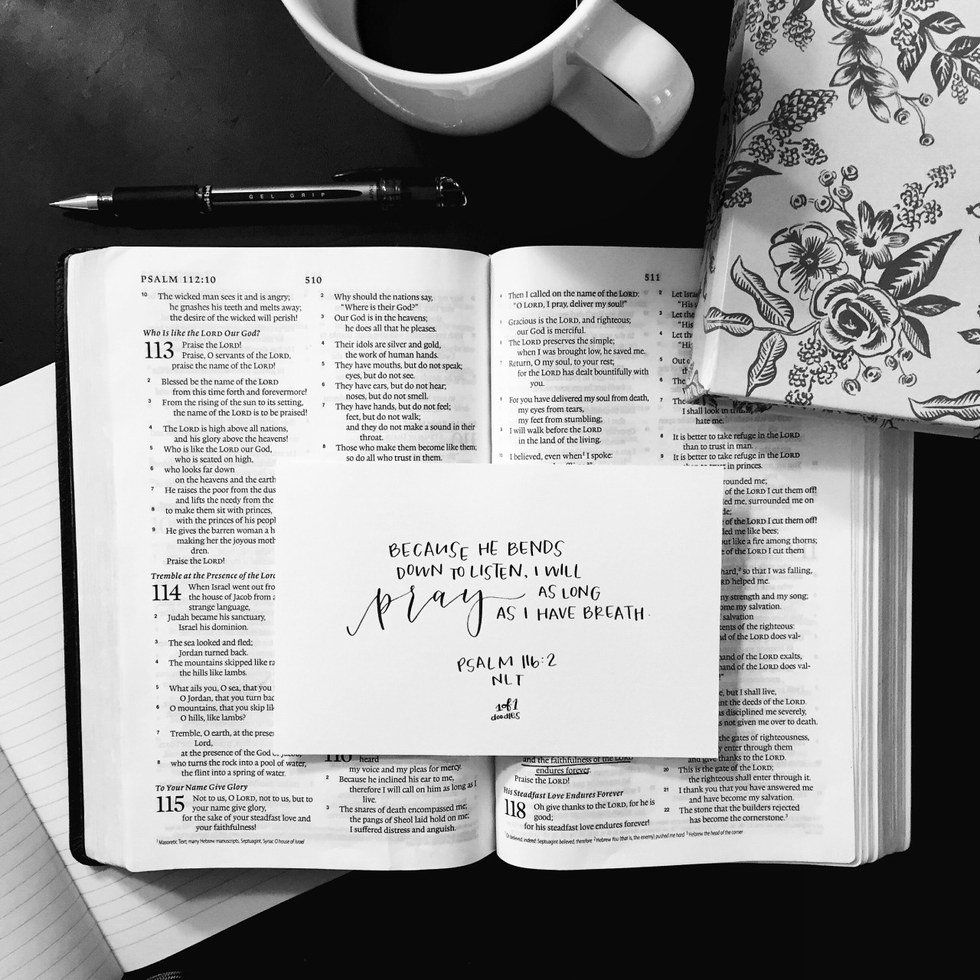 GEL GRIP
PSALM 112:10
510
10 The wicked man sees it and is angry;
he gnashes his teeth and melts away;
the desire of the wicked will perish!
Who Is like the LORD Our God?
113 Praise the LORD!
Praise, O servants of the LORD,
praise the name of the LORD!
2 Blessed be the name of the LORD
from this time forth and forevermore!
3 From the rising of the sun to its setting,
the name of the LORD is to be praised!
4 The LORD is high above all nations,
and his glory above the heavens!
5 Who is like the LORD our God,
who is seated on high,
6 who looks far down
on the heavens and the earth
7 He raises the poor from the dus
and lifts the needy from the
8 to make them sit with princes,
with the princes of his peopl
9 He gives the barren woman a h
making her the joyous moth
dren.
Praise the LORD!
Tremble at the Presence of the Lord
114 When Israel went out fro
the house of Jacob from a
strange language,
2 Judah became his sanctuary,
Israel his dominion.
3 The sea looked and fled;
Jordan turned back.
4 The mountains skipped like ra
the hills like lambs.
5 What ails you, O sea, that you
O Jordan, that you turn bac
6 O mountains, that you skip lik
O hills, like lambs?
7 Tremble, O earth, at the prese
Lord,
at the presence of the God of Jacob,
8 who turns the rock into a pool of water,
the flint into a spring of water.
To Your Name Give Glory
115 Not to us, O LORD, not to us, but to
your name give glory,
for the sake of your steadfast love and
your faithfulness!
2 Why should the nations say,
"Where is their God?"
3 Our God is in the heavens;
he does all that he pleases.
4 Their idols are silver and gold,
the work of human hands.
5 They have mouths, but do not speak;
eyes, but do not see.
6 They have ears, but do not hear;
noses, but do not smell.
7 They have hands, but do not feel;
feet, but do not walk;
and they do not make a sound in their
throat.
8 Those who make them become like them;
so do all who trust in them.
116 heard
my voice and my pleas for mercy.
2 Because he inclined his ear to me,
therefore I will call on him as long as I
live.
3 The snares of death encompassed me;
the pangs of Sheol laid hold on me;
I suffered distress and anguish.
1 Masoretic Text; many Hebrew manuscripts, Septuagint, Syriac O house of Israel
BECAUSE HE BENDS
DOWN TO LISTEN, I WILL
pray AS LONG
AS I HAVE BREATH.
PSALM 116:2
NLT
1of1
doodles
511
4 Then I called on the name of the LORD:
"O LORD, I pray, deliver my soul!"
5 Gracious is the LORD, and righteous;
our God is merciful.
6 The LORD preserves the simple;
when I was brought low, he saved me.
7 Return, O my soul, to your rest;
for the LORD has dealt bountifully with
you.
8 For you have delivered my soul from death,
my eyes from tears,
my feet from stumbling;
9 I will walk before the LORD
in the land of the living.
10 I believed, even when I spoke:
and the faithfulness of the LORD
endures forever.
Praise the LORD!
His Steadfast Love Endures Forever
118 Oh give thanks to the LORD, for he is
good;
for his steadfast love endures forever!
2 Let Israe
"His
3 Let the
"His
4 Let th
"H
5 Out o
the
6 The
7 The
I shall look in
hate me.
8 It is better to take refuge in the LORD
than to trust in man.
9 It is better to take refuge in the LORD
than to trust in princes.
rounded me;
of the LORD I cut them off!
ed me, surrounded me on
de;
of the LORD I cut them off!
ed me like bees;
out like a fire among thorns;
of the LORD I cut them
hard, so that I was falling,
LORD helped me.
my strength and my song;
ome my salvation.
salvation
tents of the righteous:
nd of the LORD does val-
and of the LORD exalts,
nd of the LORD does val-
e, but I shall live,
nt the deeds of the LORD.
s disciplined me severely,
s not given me over to death.
he gates of righteousness,
y enter through them
and give thanks to the LORD.
20 This is the gate of the LORD;
the righteous shall enter through it.
21 I thank you that you have answered me
and have become my salvation.
22 The stone that the builders rejected
has become the cornerstone.